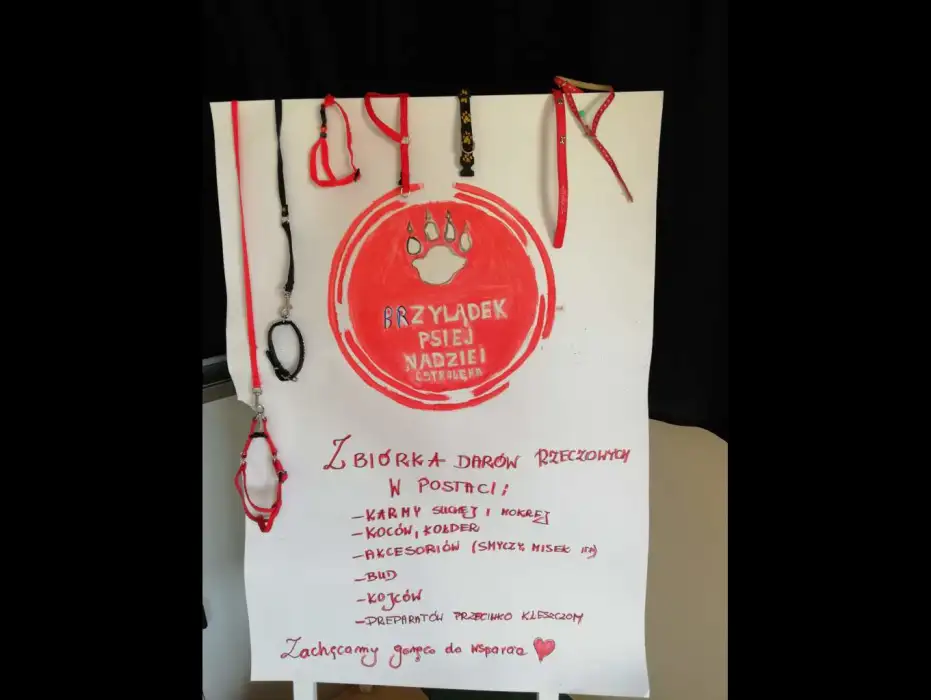 BRZYLĄDEK
PSIEJ
NADZIEI
OSTROŁĘKA
ZBIÓRKA DARÓW RZECZOWYCH
W POSTACI:
-KARMY SUCHEJ I MOKREJ
-KOCÓW, KOŁDER
-AKCESORIÓW (SMYCZY, MISEK ITP)
-BUD
-KOJCÓW
-PREPARATÓW PRZECIWKO KLESZCZOM
Zachęcamy gorąco do wsparcia